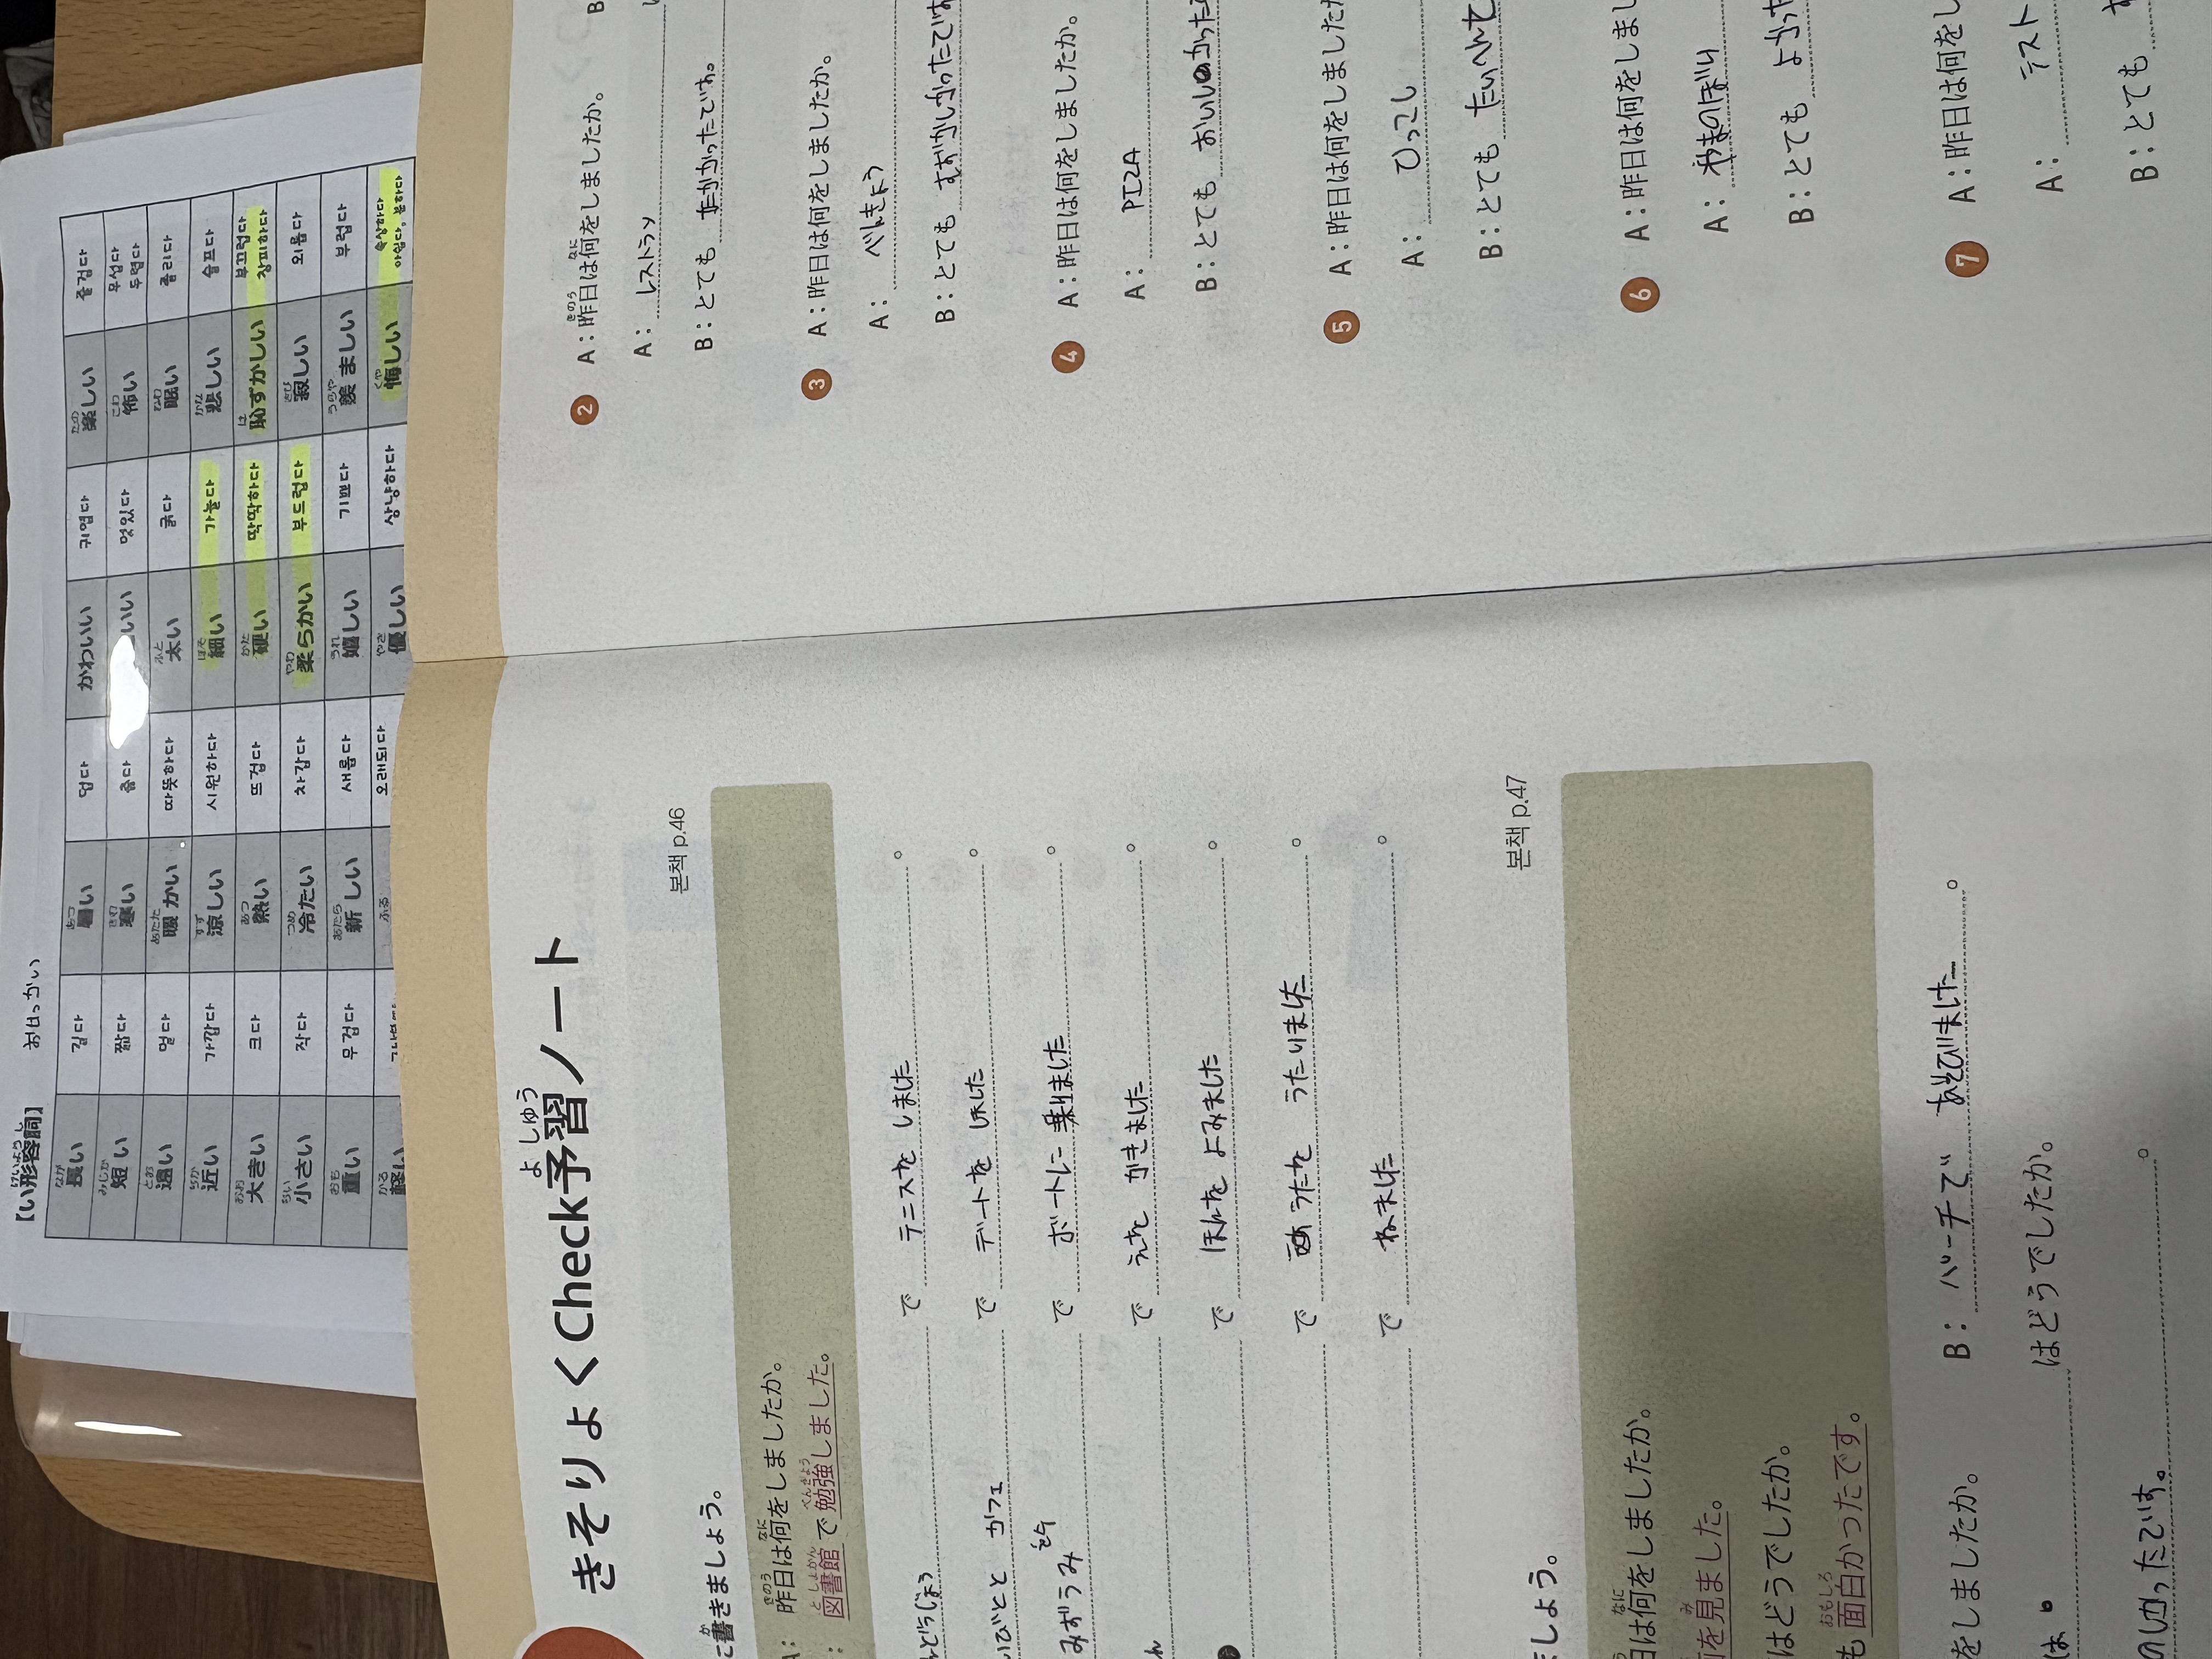 【い形容詞】 おせっかい
長い 길다 暑い 덥다 かわいい 귀엽다 楽しい 즐겁다
短い 짧다 寒い 춥다 いい 멋있다 怖い 무섭다 두렵다
遠い 멀다 暖かい 따뜻하다 太い 굵다 眠い 졸리다
近い 가깝다 涼しい 시원하다 細い 가늘다 悲しい 슬프다
大きい 크다 熱い 뜨겁다 硬い 딱딱하다 恥ずかしい 부끄럽다 창피하다
小さい 작다 冷たい 차갑다 柔らかい 부드럽다 寂しい 외롭다
重い 무겁다 新しい 새롭다 嬉しい 기쁘다 羨ましい 부럽다
軽い 오래되다 優しい 상냥하다 悔しい 속상하다 아쉽다, 분하다
きそりょくCheck予習ノート
본책 p.46
に書きましょう。
A: 昨日は何をしましたか。
: 図書館で勉強しました。
で テニスを しました。
びとと カフェ で デートを しました。
みずうみ で ボートに 乗りました。
で えを かきました。
で ほんを よみました。
で うたを うたいました。
で ねました。
본책 p.47
ましょう。
日は何をしましたか。
を見ました。
はどうでしたか。
も面白かったです。
をしましたか。 B: バーチで あそびました。
はどうでしたか。
のしかったです。
2 A:昨日は何をしましたか。
A: レストラン
B:とても たかかったです。
3 A:昨日は何をしましたか。
A: べんきょう
B:とても むずかしかったです
4 A:昨日は何をしましたか。
A: PIZA
B:とても おいしかった
5 A:昨日は何をしました
A: ひっこし
B:とても たいへんで
6 A:昨日は何をしまし
A: やまのぼり
B:とても よかった
7 A:昨日は何をし
A: テスト
B:とても